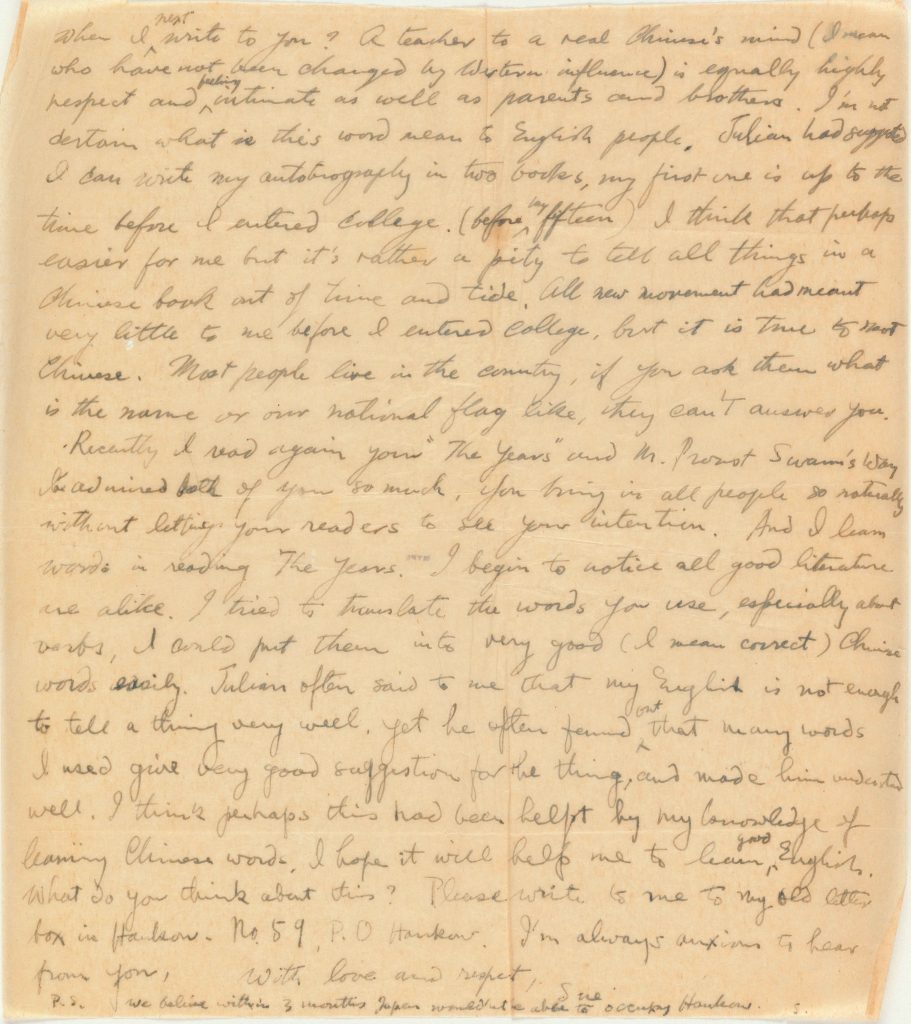 when I next write to you? A teacher to a real Chinese's mind (I mean
who have not been changed by Western influence) is equally highly
respect and feeling intimate as well as parents and brothers. I'm not
certain what is this word mean to English people. Julian had suggested
I can write my autobiography in two books, my first one is up to the
time before I entered college. (before my fifteen) I think that perhaps
easier for me but it's rather a pity to tell all things in a
Chinese book out of time and tide. All new movement had meant
very little to me before I entered college, but it is true to most
Chinese. Most people live in the country, if you ask them what
is the name or our national flag like, they can't answer you.
Recently I read again your "The Years" and M. Proust Swann's Way
I've admired both of you so much, you bring in all people so naturally
without letting your readers to see your intention. And I learn
words in reading The Years. I begin to notice all good literature
are alike. I tried to translate the words you use, especially about
verbs, I could put them into very good (I mean correct) Chinese
words easily. Julian often said to me that my English is not enough
to tell a thing very well, yet he often found out that many words
I used give very good suggestion for the thing, and made him understand
well. I think perhaps this had been helpt by my knowledge of
learning Chinese words, I hope it will help me to learn good English.
What do you think about this? Please write to me to my old letter
box in Hankow. No. 59, P.O Hankow. I'm always anxious to hear
from you,
with love and respect,
Sue
P.S. we believe within 3 months Japan would not be able to occupy Hankow. S.